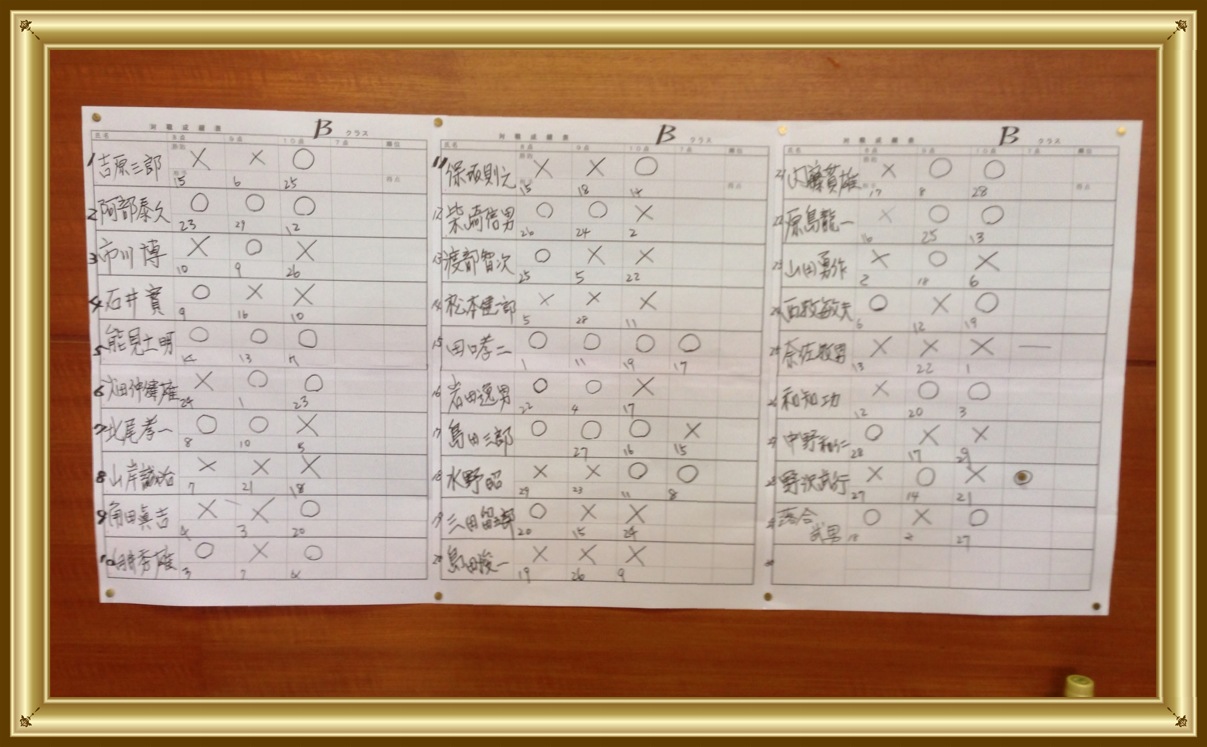 対戦成績表 B クラス
氏名 8点 9点 10点 7点 順位
1 吉原三郎 × × ○
15 6 25
2 阿部泰久 ○ ○ ○
23 29 12
3 市川博 × ○ ×
10 9 26
4 石井實 ○ × ×
9 16 10
5 能見士明 ○ ○ ○
14 13 7
6 × ○ ○
24 1 23
7 北尾孝一 ○ ○ ×
8 10 5
8 山岸誠治 × × ×
7 21 18
9 角田眞吉 × × ○
4 3 20
10 ○ × ○
3 7 4
対戦成績表 B クラス
氏名 8点 9点 10点 7点 順位
11 保坂則元 × × ○
15 18 14
12 柴崎信男 ○ ○ ×
26 24 2
13 渡部智次 ○ × ×
25 5 22
14 松本健一郎 × × ×
5 28 11
15 田口孝二 ○ ○ ○ ○
1 11 19 17
16 岩田逸男 ○ ○ ×
22 4 17
17 島田三郎 ○ ○ ○ ×
27 16 15
18 水野昭 × × ○ ○
29 23 11 8
19 ○ × ×
20 15 24
20 島田俊一 × × ×
19 26 9
対戦成績表 B クラス
氏名 8点 9点 10点 7点 順位
21 × ○ ○
17 8 28
22 原島龍一 × ○ ○
16 25 13
23 山田勇作 × ○ ×
2 18 6
24 ○ × ○
6 12 19
25 奈佐敏男 × × × —
13 22 1
26 和知功 × ○ ○
12 20 3
27 ○ × ×
28 17 29
28 野沢武行 × ○ ×
27 14 21
29 落合 ○ × ○
武男 18 2 27
30